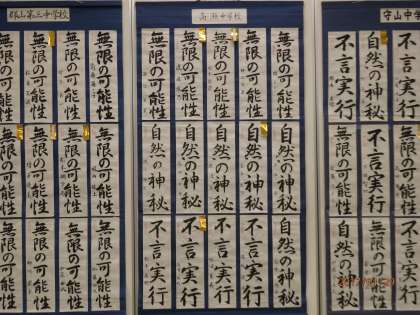 郡山第三中学校
無限の可能性
無限の可能性
無限の可能性
無限の可能性
無限の可能性
無限の可能性
無限の可能性
無限の可能性
無限の可能性
無限の可能性
無限の可能性
無限の可能性
高瀬中学校
無限の可能性
無限の可能性
無限の可能性
無限の可能性
無限の可能性
自然の神秘
自然の神秘
自然の神秘
自然の神秘
自然の神秘
不言実行
不言実行
不言実行
不言実行
自然の神秘
守山中学
不言実行
自然の神秘
不言実行
無限の可能性
不言実行
無限の可能性
自然の神秘
無限の可能性
不言実行